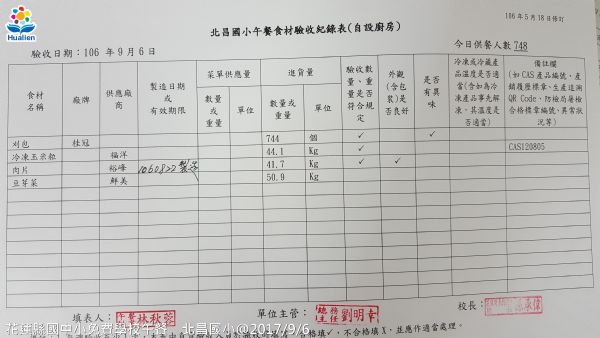 Hualien
106年5月18日修訂
北昌國小午餐食材驗收紀錄表(自設廚房)
驗收日期:106 年 9 月 6 日
今日供餐人數 748
食材名稱 廠牌 供應廠商 製造日期或有效期限 菜單供應量 進貨量 驗收數量、重量是否符合規定 外觀(含包裝)是否良好 是否有異味 冷凍或冷藏產品溫度是否適當(含如為冷凍產品事先解凍，其溫度是否適當) 備註欄(如 CAS 產品編號、產銷履歷標章、生產追溯 QR Code、防檢局屠檢合格標章編號、異常狀況等)
數量或重量 單位 數量或重量 單位
刈包 桂冠 744 個 ✓ ✓
冷凍玉米粒 福洋 44.1 Kg ✓ CAS120805
肉片 裕峰 1060822製 41.7 Kg ✓ ✓
豆芽菜 鮮美 50.9 Kg
填表人: 林秋蓉
單位主管: 總務主任 劉明幸
校長:
花蓮縣國中小免費學校午餐 北昌國小@2017/9/6